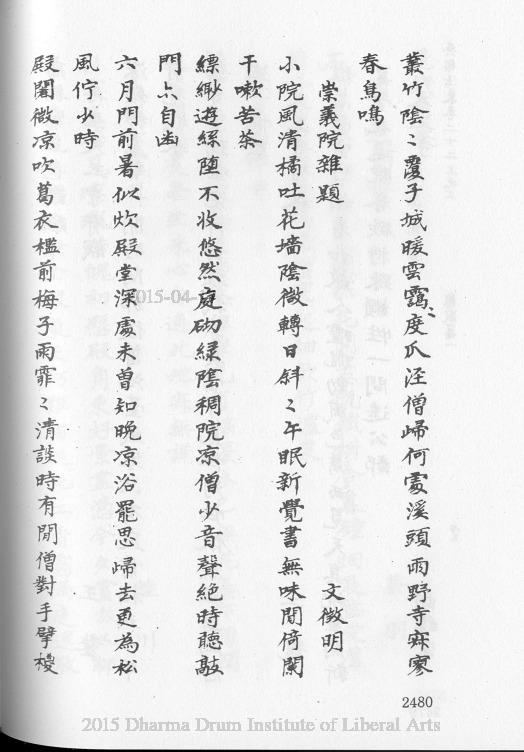 叢竹陰〻覆子城暖雲靄〻度爪涇僧歸何處溪頭雨野寺寂寥
春鳥鳴
崇義院雜題 文徵明
小院風清橘吐花墻陰微轉日斜〻午眠新覺書無味閒倚闌
干嗽苦茶
縹緲遊絲堕不收悠然庭砌綠陰稠院凉僧少音聲絕時聽敲
門亦自幽
六月門前暑似炊殿堂深處未曾知晚凉浴罷思歸去更為松
風佇少時
殿閣微凉吹葛衣檻前梅子雨霏〻清談時有閒僧對手擘椶
2480
2015-04-
2015 Dharma Drum Institute of Liberal Arts